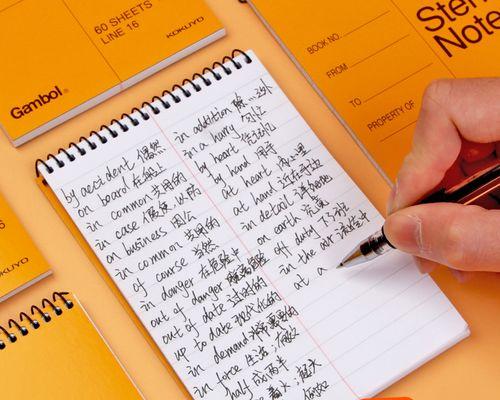 60 SHEETS
LINE 16
KOKUYO
Gambol®
Sten
Note
BOOK NO.
FROM
TO
PROPERTY OF
KOKUYO
by accident 偶然
on board 在船上
in common 共用的
in case
on business 因公
in common 共用的
of course 当然
in danger 在危险中
out of danger 脱离危险
out of date 过时的
up to date 现代化的
in demand
in force 生效
half
in addition 除…之外
in a hurry 匆忙
by heart
by hand 用手
at heart
at hand 近在手边
in detail 详细地
on earth 究竟
off duty 下班
in the air
at a